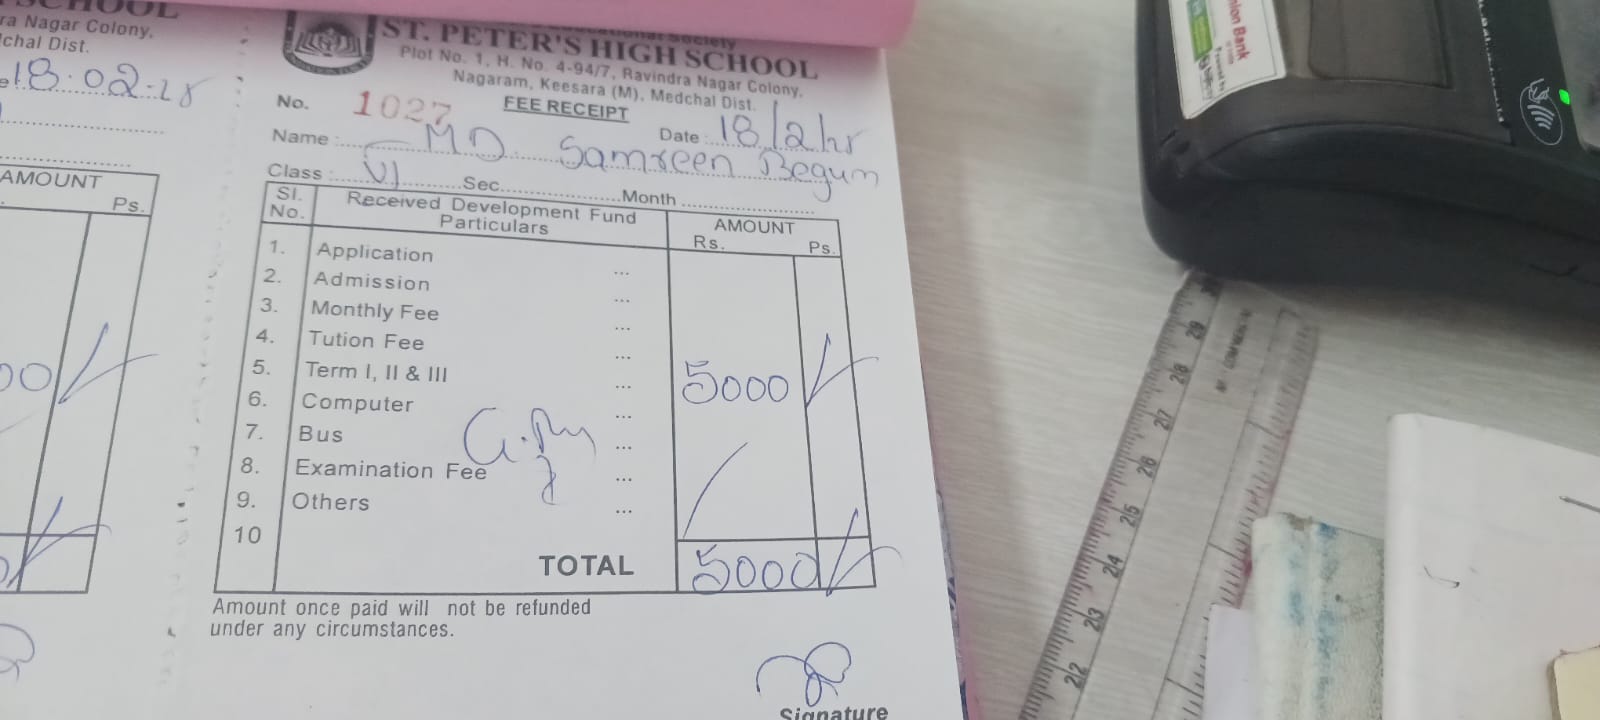 SCHOOL
ra Nagar Colony,
chal Dist.
18.02.
AMOUNT
Ps.
00/
ST. PETER'S HIGH SCHOOL
Plot No. 1, H. No. 4-94/7, Ravindra Nagar Colony,
Nagaram, Keesara (M), Medchal Dist.
No. 1027 FEE RECEIPT
Date : 18/2/
Name : MD. Samreen Begum
Class : VI Sec. Month
Sl. No. Received Development Fund Particulars AMOUNT
Rs. Ps.
1. Application ...
2. Admission ...
3. Monthly Fee ...
4. Tution Fee ...
5. Term I, II & III ... 5000/
6. Computer ...
7. Bus ...
8. Examination Fee ...
9. Others ...
10
TOTAL 5000/
Amount once paid will not be refunded
under any circumstances.
Signature
nion Bank
30
29
28
27
26
25
24
23
22